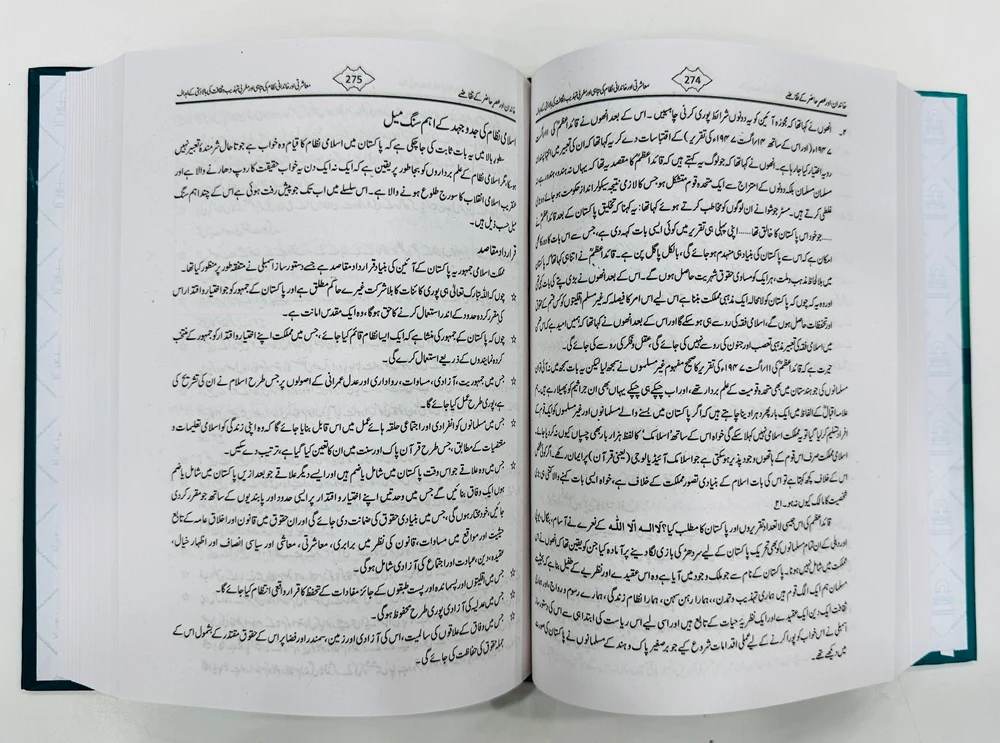 خاندان اور عصر حاضر کے تقاضے
274
معاشرتی اور خاندانی نظام کی تباہی اور مغربی تہذیب و ثقافت کی بالادستی کے اہداف
۲۔ انھوں نے کہا تھا کہ مجوزہ آئین کو یہ دونوں شرائط پوری کرنی چاہییں۔ اس کے بعد انھوں نے قائداعظمؒ کی ۱۱ اگست
۱۹۴۷ء (اور اس کے ساتھ ۱۴ اگست ۱۹۴۷ء کی تقریر) کے اقتباسات دے کر یہ کہا تھا کہ ان کی تعبیر میں انتہا پسندانہ
رویہ اختیار کیا جا رہا ہے۔ انھوں نے کہا تھا کہ جو لوگ یہ کہتے ہیں کہ قائداعظمؒ کا مقصد یہ تھا کہ یہاں نہ ہندو، ہندو رہے نہ
مسلمان مسلمان بلکہ دونوں کے امتزاج سے ایک متحدہ قوم متشکل ہو جس کا لازمی نتیجہ سیکولر انداز حکومت ہو جائے وہ بڑی
غلطی کرتے ہیں۔ مسٹر جوشوا نے ان لوگوں کو مخاطب کرتے ہوئے کہا تھا: یہ کہنا کہ تخلیق پاکستان کے بعد قائداعظمؒ نے
..... جو خود اس پاکستان کا خالق تھا ..... اپنی پہلی ہی تقریر میں کوئی ایسی بات کہہ دی ہے، جس سے اس بات کا دور کا بھی
امکان ہے کہ اس سے پاکستان کی بنیاد ہی منہدم ہو جائے گی، بالکل پاگل پن ہے۔ قائداعظمؒ نے اتنا ہی کہا تھا کہ پاکستان
میں بلالحاظ مذہب و ملت، ہر ایک کو مساوی حقوق شہریت حاصل ہوں گے۔ اس کے بعد انھوں نے بڑی پتے کی بات کہی
اور وہ یہ کہ چوں کہ پاکستان کو لامحالہ ایک مذہبی مملکت بننا ہے اس لیے اس امر کا فیصلہ کہ غیر مسلم اقلیتوں کو کس قسم کے حقوق
اور تحفظات حاصل ہوں گے، اسلامی فقہ کی رو سے ہی ہو سکے گا اور اس کے بعد انھوں نے کہا تھا کہ ہمیں امید ہے کہ اس ضمن
میں اسلامی فقہ کی تعبیر مذہبی تعصب اور جنون کی رو سے نہیں کی جائے گی، عقل و فکر کی رو سے کی جائے گی۔
حیرت ہے کہ قائداعظمؒ کی ۱۱ اگست ۱۹۴۷ء کی تقریر کا صحیح مفہوم غیر مسلموں نے سمجھ لیا لیکن یہ بات سمجھ میں نہ آئی تو ان
مسلمانوں کی جو ہندوستان میں بھی متحدہ قومیت کے علم بردار تھے، اور اب چپکے ہی چپکے یہاں بھی ان جراثیم کو پھیلا رہے ہیں۔
علامہ اقبالؒ کے الفاظ میں ایک بار پھر دہرا دینا چاہتے ہیں کہ اگر پاکستان میں بسنے والے مسلمانوں اور غیر مسلموں کو ایک قوم کے
افراد تسلیم کر لیا گیا تو یہ مملکت اسلامی نہیں کہلا سکے گی خواہ اس کے ساتھ 'اسلامک' کا لفظ ہزار بار بھی چسپاں کیوں نہ کر دیا جائے
اسلامی مملکت صرف اس قوم کے ہاتھوں وجود پذیر ہو سکتی ہے جو اسلامک آئیڈیالوجی (یعنی قرآن) پر ایمان رکھے۔ اگر کوئی شخص
اس کے خلاف کچھ کہتا ہے تو اس کی بات اسلام کے بنیادی تصور مملکت کے خلاف ہے، خواہ ایسی بات کہنے والا کتنی ہی بڑی
شخصیت کا مالک کیوں نہ ہو۔ ۲۱
قائداعظمؒ کی اس جیسی لاتعداد تقریروں اور پاکستان کا مطلب کیا؟ لا الہ الا اللہ کے نعرے نے آسام، بنگال، یوپی
اور دہلی کے ان تمام مسلمانوں کو بھی تحریک پاکستان کے لیے سر دھڑ کی بازی لگا دینے پر آمادہ کیا جن کو یقین تھا کہ وہ اس
مملکت میں شامل نہیں ہوں گے۔ پاکستان کے نام سے جو ملک وجود میں آیا ہے وہ اس عقیدے اور نظریے کے طفیل بنا ہے کہ ہم
مسلمان ہم ایک الگ قوم ہیں ہماری تہذیب و تمدن، ہمارا رہن سہن، ہمارا نظام زندگی، ہمارے رسوم و رواج، اور ہماری
ثقافت ایک دین ایک عقیدے اور ایک نظریۂ حیات کے تابع ہیں اور اسی لیے اس ریاست کی ابتدا ہی سے اس کی دستور ساز
اسمبلی نے اس خواب کو پورا کرنے کے لیے عملی اقدامات شروع کیے جو برصغیر پاک و ہند کے مسلمانوں نے پاکستان کی صورت
میں دیکھے تھے۔
275
معاشرتی اور خاندانی نظام کی تباہی اور مغربی تہذیب و ثقافت کی بالادستی کے اہداف
خاندان اور عصر حاضر کے تقاضے
اسلامی نظام کی جدوجہد کے اہم سنگ میل
سطور بالا میں یہ بات ثابت کی جا چکی ہے کہ پاکستان میں اسلامی نظام کا قیام وہ خواب ہے جو تا حال شرمندۂ تعبیر نہیں
ہو سکا، مگر اسلامی نظام کے علم برداروں کو بجا طور پر یقین ہے کہ ایک نہ ایک دن یہ خواب حقیقت کا روپ دھارنے والا ہے اور
عنقریب اسلامی انقلاب کا سورج طلوع ہونے والا ہے۔ اس سلسلے میں اب تک جو پیش رفت ہوئی ہے اس کے چند اہم سنگ
میل حسب ذیل ہیں۔
قرارداد مقاصد
مملکت اسلامی جمہوریہ پاکستان کے آئین کی بنیاد قرارداد مقاصد ہے جسے دستور ساز اسمبلی نے متفقہ طور پر منظور کیا تھا۔
☆ چوں کہ اللہ تبارک تعالیٰ ہی پوری کائنات کا بلا شرکت غیرے حاکم مطلق ہے اور پاکستان کے جمہور کو جو اختیار و اقتدار اس
کی مقرر کردہ حدود کے اندر استعمال کرنے کا حق ہوگا، وہ ایک مقدس امانت ہے۔
☆ چوں کہ پاکستان کے جمہور کی منشا ہے کہ ایک ایسا نظام قائم کیا جائے، جس میں مملکت اپنے اختیار و اقتدار کو جمہور کے منتخب
کردہ نمایندوں کے ذریعے استعمال کرے گی۔
☆ جس میں جمہوریت، آزادی، مساوات، رواداری اور عدل عمرانی کے اصولوں پر جس طرح اسلام نے ان کی تشریح کی
ہے، پوری طرح عمل کیا جائے گا۔
☆ جس میں مسلمانوں کو انفرادی اور اجتماعی حلقہ ہائے عمل میں اس قابل بنایا جائے گا کہ وہ اپنی زندگی کو اسلامی تعلیمات و
مقتضیات کے مطابق، جس طرح قرآن پاک اور سنت میں ان کا تعین کیا گیا ہے، ترتیب دے سکیں۔
☆ جس میں وہ علاقے جو اس وقت پاکستان میں شامل یا ضم ہیں اور ایسے دیگر علاقے جو بعد ازیں پاکستان میں شامل یا ضم
ہوں ایک وفاق بنائیں گے جس میں وحدتیں اپنے اختیار و اقتدار پر ایسی حدود اور پابندیوں کے ساتھ جو مقرر کر دی
جائیں، خود مختار ہوں گی، جس میں بنیادی حقوق کی ضمانت دی جائے گی اور ان حقوق میں قانون اور اخلاق عامہ کے تابع
حیثیت اور مواقع میں مساوات، قانون کی نظر میں برابری، معاشرتی، معاشی اور سیاسی انصاف اور اظہار خیال،
عقیدہ، دین، عبادت اور اجتماع کی آزادی شامل ہوگی۔
☆ جس میں اقلیتوں اور پسماندہ اور پست طبقوں کے جائز مفادات کے تحفظ کا قرار واقعی انتظام کیا جائے گا۔
☆ جس میں عدلیہ کی آزادی پوری طرح محفوظ ہوگی۔
☆ جس میں وفاق کے علاقوں کی سالمیت، اس کی آزادی اور زمین، سمندر اور فضا پر اس کے حقوق مقتدر کے بشمول اس کے
جملہ حقوق کی حفاظت کی جائے گی۔